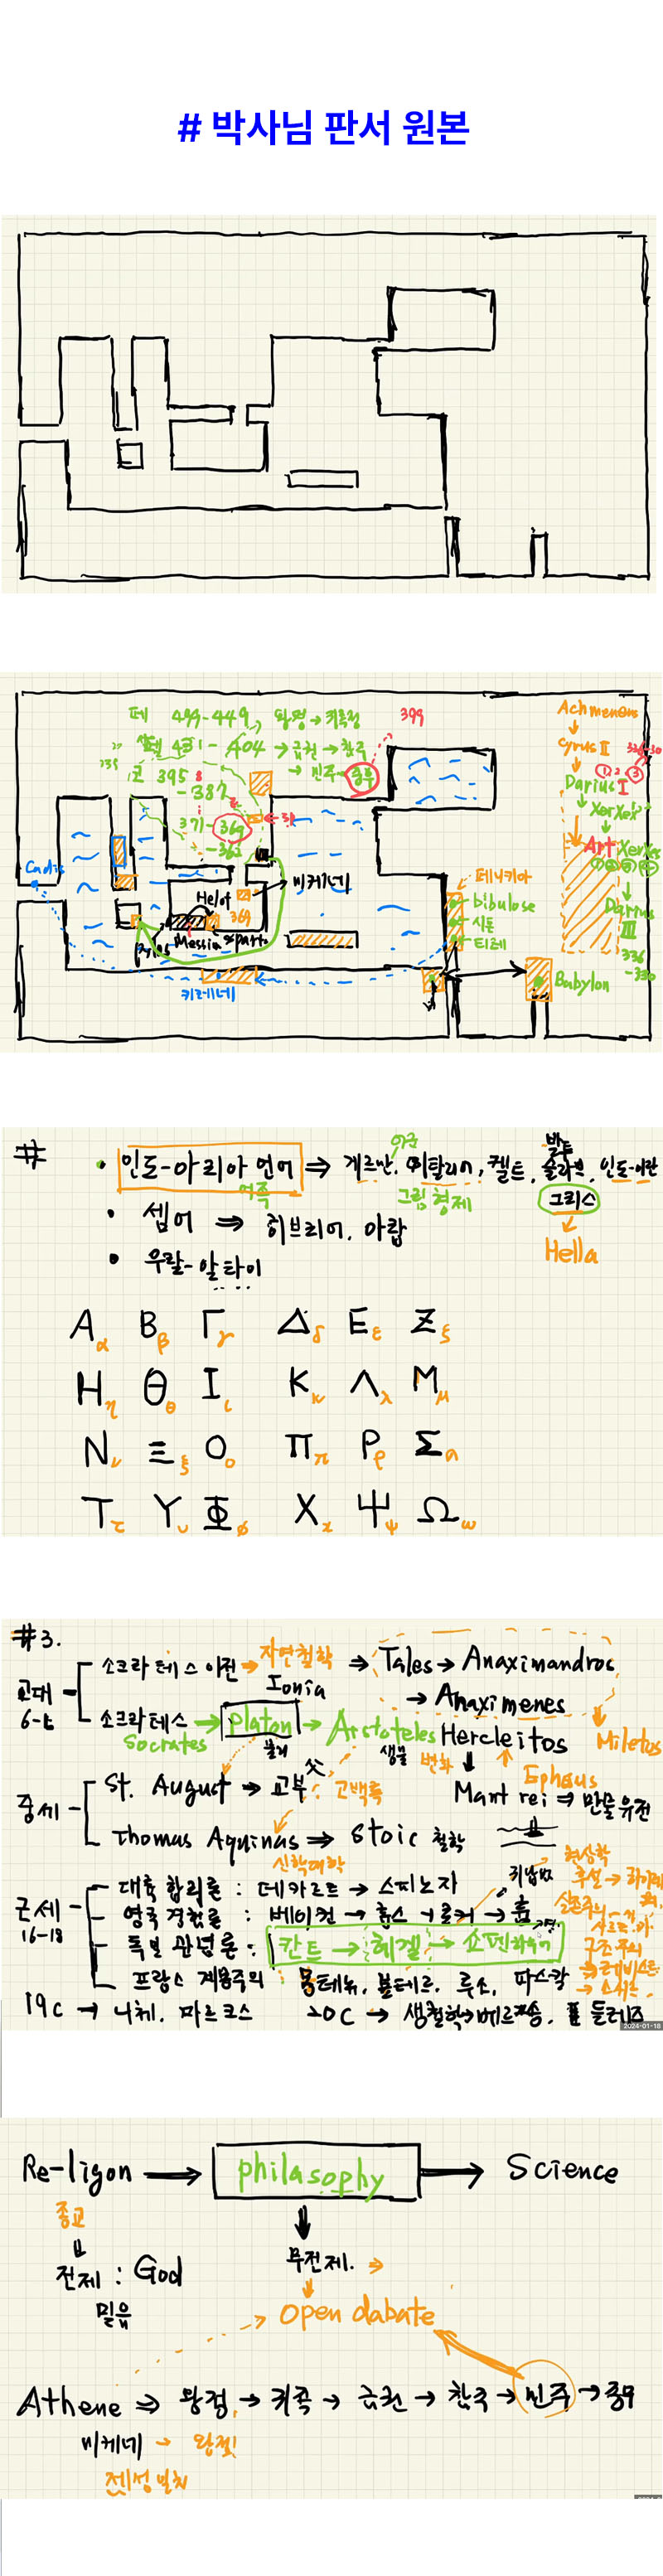 # 박사님 판서 원본
페 499-449, 왕정 → 귀족정
399
펠 431-404 → 금권 → 참주
→ 민주 → 중우
코 395
-387
371-369
-362
Achmenens
Cyrus II
Darius I
Xerxes
Art Xerxes
Darius III
336
-330
Cadis
Helot
369
Messin
Sparta
Pylos
미케네
키레네
페니키아
bibulose
시돈
티레
Babylon
#
· 인도-아리아 언어 ⇒ 게르만, 이탈리아, 켈트, 슬라브, 인도-이란
발트
어족
그림 형제
그리스
Hella
· 셈어 ⇒ 히브리어, 아랍
· 우랄-알타이
Α α Β β Γ γ Δ δ Ε ε Ζ ξ
Η η Θ θ Ι ι Κ κ Λ λ Μ μ
Ν ν Ξ ξ Ο ο Π π Ρ ρ Σ
Τ τ Υ υ Φ φ Χ χ Ψ ψ Ω ω
#3.
고대
소크라테스 이전 → 자연철학 ⇒ Tales → Anaximandros
Ionia
→ Anaximenes
소크라테스 → Platon → Aristoteles
Socrates
생물
Hercleitos
Miletos
변화
Ephaus
Mant rei ⇒ 만물유전
중세
St. August → 교부
父
고백록
Thomas Aquinas ⇒ Stoic 철학
신학대학
근세
16-18
대륙 합리론 : 데카르트 → 스피노자
영국 경험론 : 베이컨 → 홉스 → 로크 → 흄
귀납법
독일 관념론 : 칸트 → 헤겔 → 쇼펜하우어
프랑스 계몽주의 몽테뉴, 볼테르, 루소, 파스칼
현상학
실존주의
구조주의
19c → 니체, 마르크스 20C → 생철학 → 베르그송, 들뢰즈
2024-01-18
Re-ligon → philasophy → Science
종교
전제 : God
믿음
무전제. ⇒
open dabate
Athene ⇒ 왕정 → 귀족 → 금권 → 참주 → 민주 → 중우
미케네 → 왕정!
제정일치